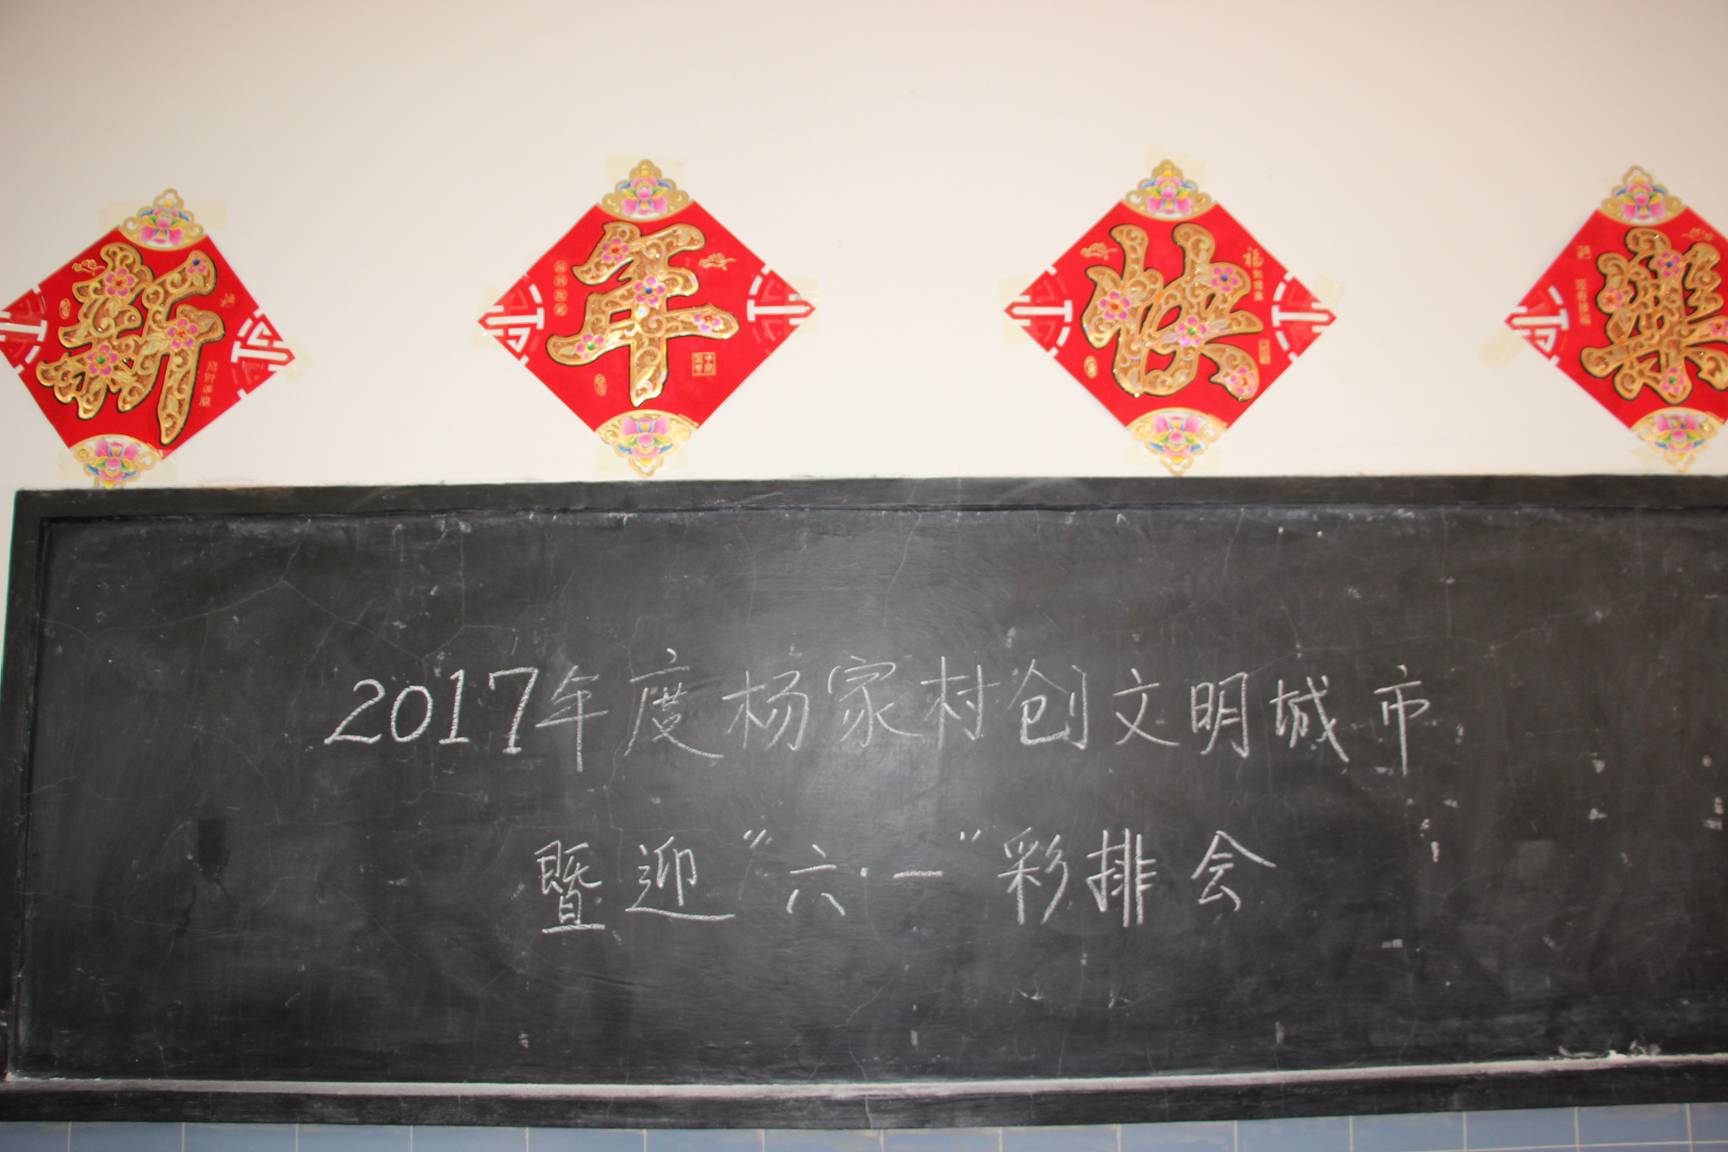 新年快樂
2017年度杨家村创文明城市
暨迎“六·一”彩排会